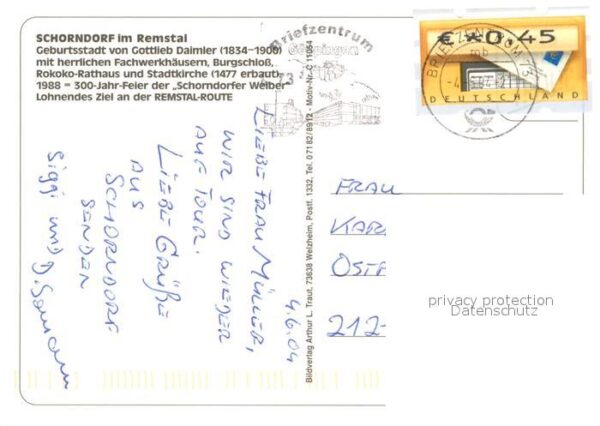 SCHORNDORF im Remstal
Geburtsstadt von Gottlieb Daimler (1834–1900)
mit herrlichen Fachwerkhäusern, Burgschloß,
Rokoko-Rathaus und Stadtkirche (1477 erbaut)
1988 = 300-Jahr-Feier der „Schorndorfer Weiber"
Lohnendes Ziel an der REMSTAL-ROUTE
Briefzentrum
Göppingen
73
€ 0,45
DEUTSCHLAND
BRIEFZENTRUM 73
mb
4.6.04
LIEBE FRAU MÜLLER,
WIR SIND WIEDER
AUF TOUR.
LIEBE GRÜßE
AUS
SCHORNDORF
SENDEN
Siggi und D.
Bildverlag Arthur L. Traut, 73638 Welzheim, Postf. 1332, Tel. 07182/8912 - Motiv-Nr. C 11054
FRAU
KAR
OST
212-
privacy protection
Datenschutz